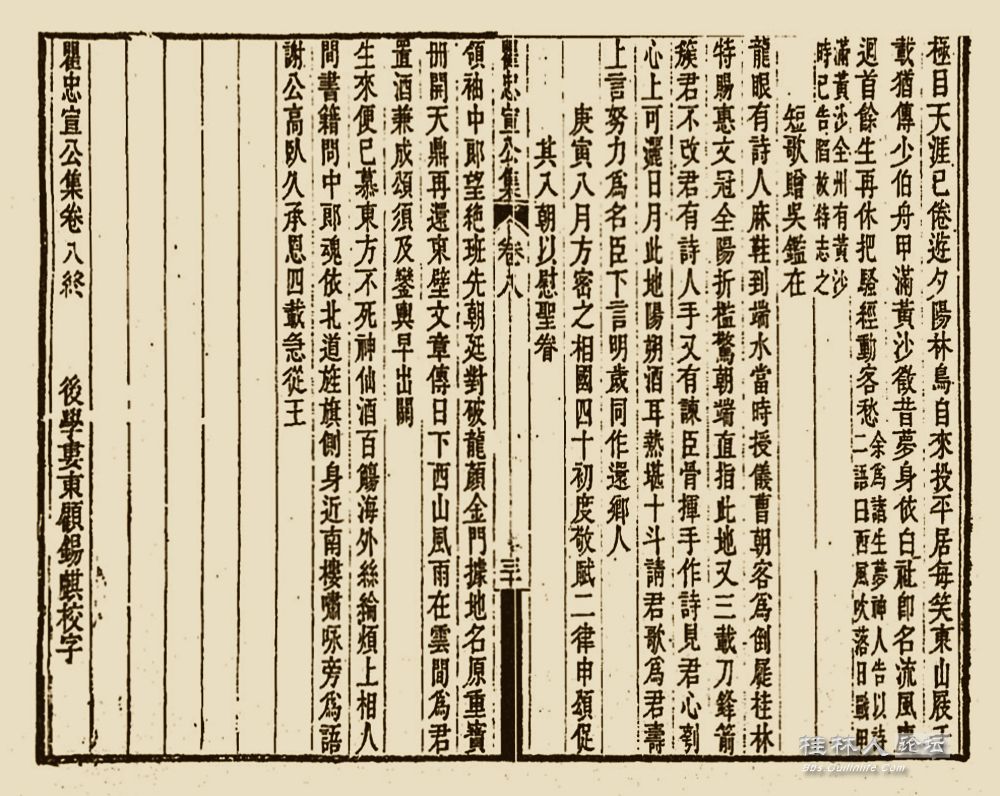 極目天涯已倦遊夕陽林鳥自來投平居每笑東山屐
載猶傳少伯舟甲滿黃沙徵昔夢身依白社卽名流風
迴首餘生再休把騷經動客愁余爲諸生夢神人告以詩
二語曰西風吹落日戰甲
滿黃沙全州有黃沙
時已告陷故特志之
短歌贈吳鑑在
龍眼有詩人麻鞋到端水當時授儀曹朝客爲倒屣桂林
特賜惠文冠全陽折檻驚朝端直指此地又三載刀鋒箭
簇君不改君有詩人手又有諫臣骨揮手作詩見君心剖
心上可灑日月此地陽朔酒耳熱堪十斗請君歌爲君壽
上言努力爲名臣下言明歲同作還鄉人
庚寅八月方密之相國四十初度敬賦二律申頌促
其入朝以慰聖眷
瞿忠宣公集 卷八 三十
領袖中郞望絶班先朝廷對破龍顏金門據地名原重寶
冊開天鼎再還東壁文章傳日下西山風雨在雲間爲君
置酒兼成頌須及鑾輿早出關
生來便已慕東方不死神仙酒百觴海外絲綸煩上相人
間書籍問中郞魂依北道旌旗側身近南樓嘯咏旁爲語
謝公高臥久承恩四載急從王
瞿忠宣公集卷八終 後學婁東顧錫麒校字
桂林人论坛
bbs.Guilinlife.Com